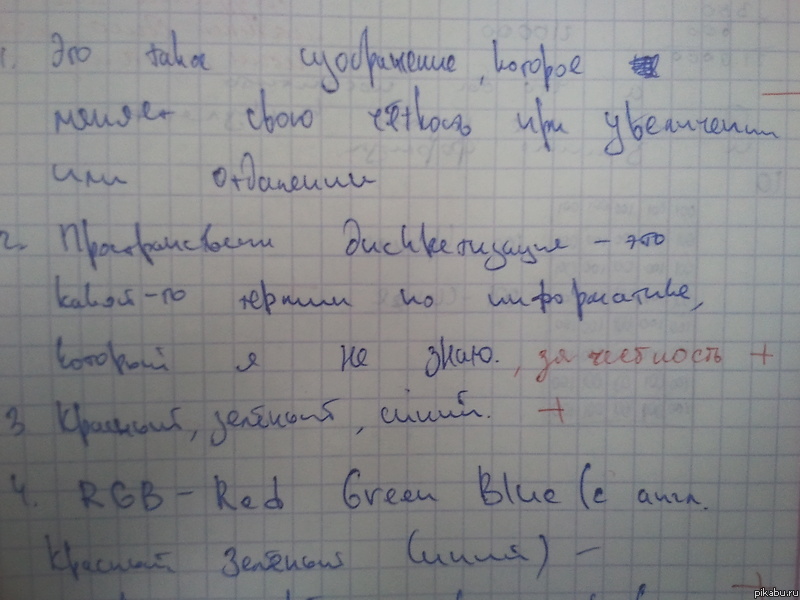 1. Это такое изображение, которое
меняет свою чёткость при увеличении
или отдалении
2. Пространствен дискретизация – это
какой-то термин по информатике,
который я не знаю. , за честность +
3 Красный, зелёный, синий. +
4. RGB – Red Green Blue (с англ.
Красный Зелёный Синий) –
+
pikabu.ru